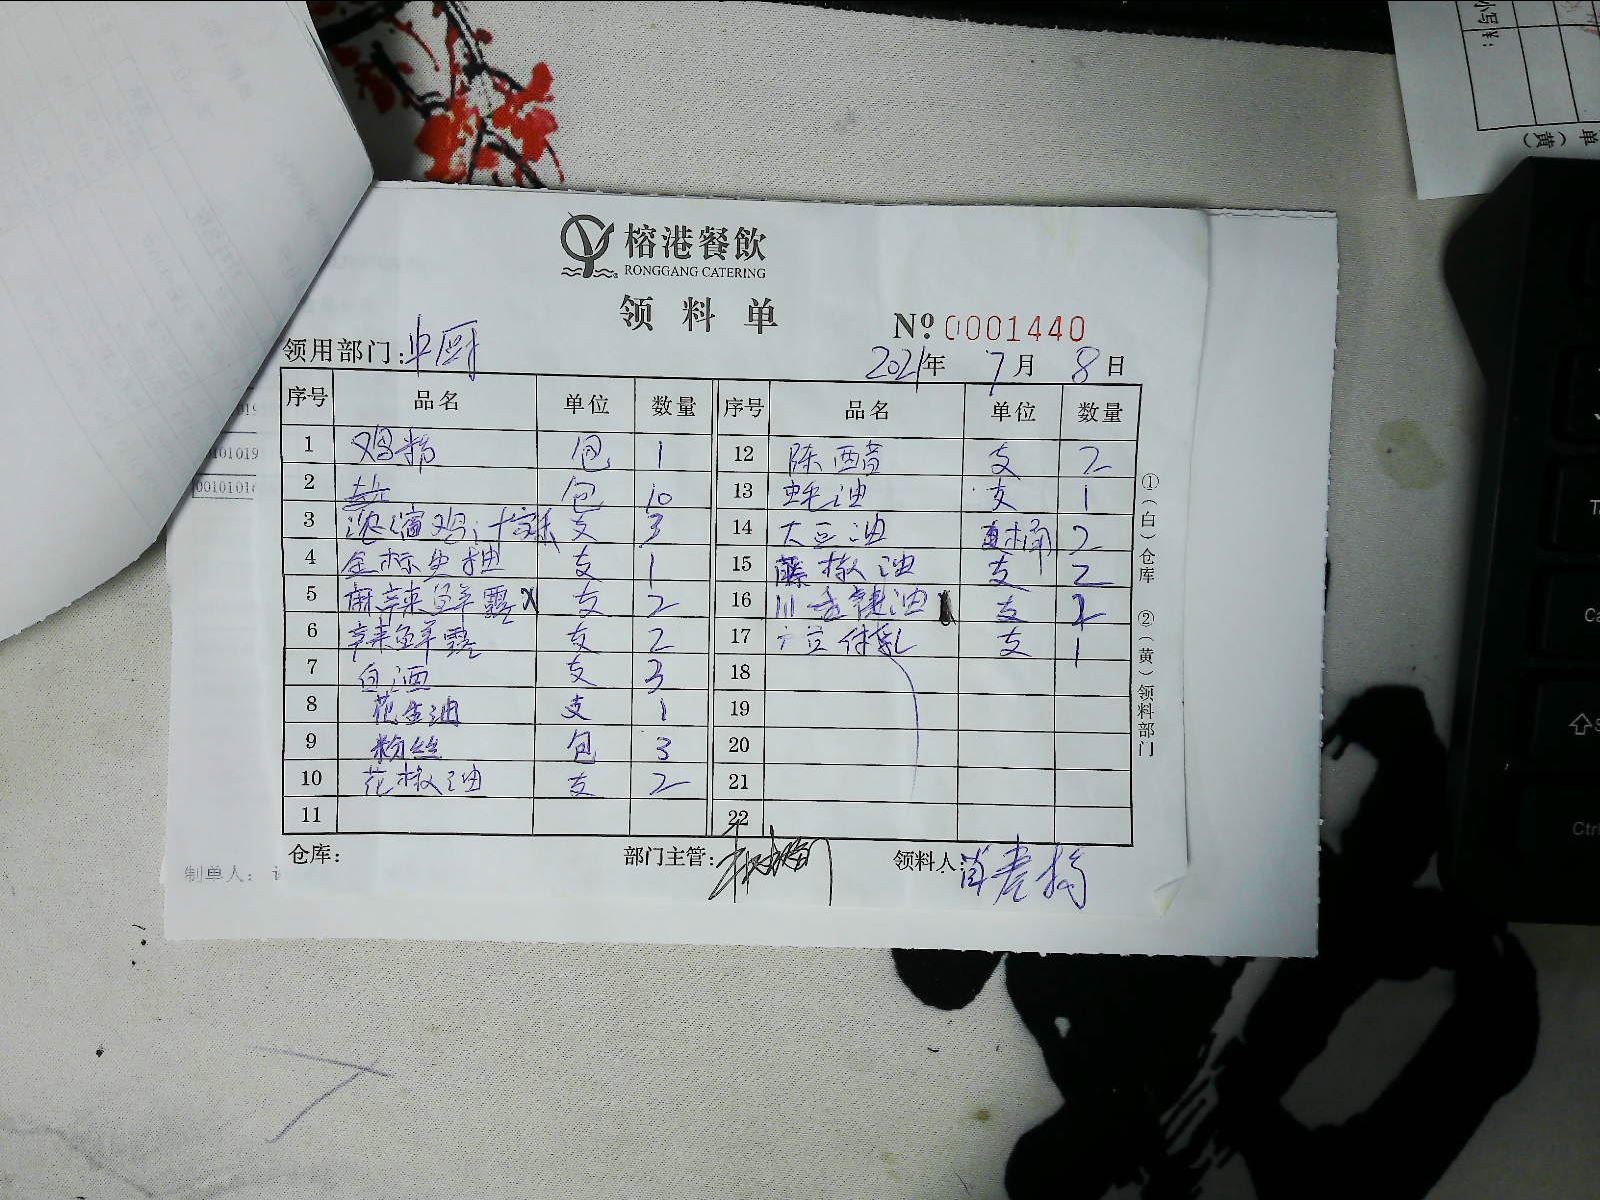 榕港餐飲
RONGGANG CATERING
领料单
№ 0001440
领用部门: 中厨
2021年 7月 8日
序号 品名 单位 数量 序号 品名 单位 数量
1 鸡粉 包 1 12 陈醋 支 2
2 盐 包 10 13 蚝油 支 1
3 浓缩鸡汁 支 3 14 大豆油 桶 2
4 金标生抽 支 1 15 藤椒油 支 2
5 麻辣鲜露 支 2 16 川香 油 支
6 辣鲜露 支 2 17 支 1
7 白酒 支 3 18
8 花生油 支 1 19
9 粉丝 包 3 20
10 花椒油 支 2 21
11 22
仓库: 部门主管: 领料人:
①(白)仓库 ②(黄)领料部门
制单人:
0101019
00101016
单(黄)
小写¥:
Ctrl